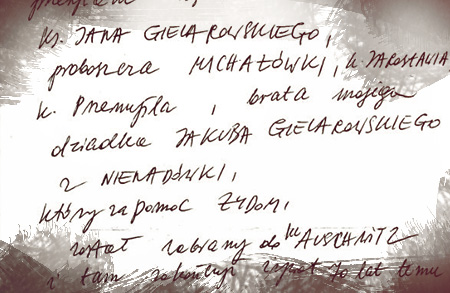 ks. JANA GIELAROWSKIEGO,
proboszcza MICHAŁÓWKI, k. JAROSŁAWIA
k. Przemyśla, brata mojego
dziadka JAKUBA GIELAROWSKIEGO
z NIENADÓWKI,
który za pomoc ŻYDOM,
został zabrany do KL AUSCHWITZ
i tam zakończył 70 lat temu